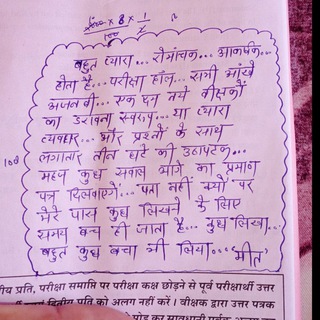 × 8 × 1/2
100
बहुत प्यारा... रोमांचक... आकर्षक...
होता है... परीक्षा हॉल... सारी आँखें
अजनबी... एक दम नये वीक्षकों
का डरावना स्वरूप... या प्यारा
व्यवहार... और प्रश्नों के साथ
लगातार तीन घंटे की उठापटक...
महज कुछ सवाल भागे का प्रमाण
पत्र दिलवाएंगे... पता नहीं क्यों पर
मेरे पास कुछ लिखने के लिए
समय बच ही जाता है... कुछ लिखा...
बहुत कुछ बचा भी लिया... "मीत"
100
प्रति, परीक्षा समाप्ति पर परीक्षा कक्ष छोड़ने से पूर्व परीक्षार्थी उत्तर
द्वितीय प्रति को अलग नहीं करें। वीक्षक द्वारा उत्तर पत्रक